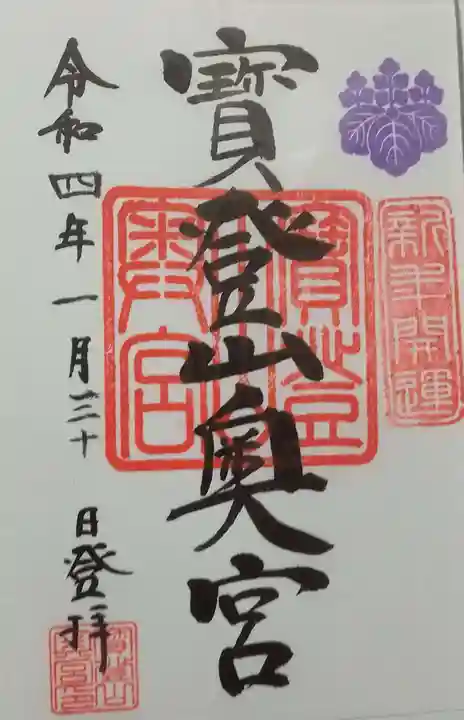 新年開運
寳登山奥宮
寳登山奥宮
令和四年一月三十日登拝